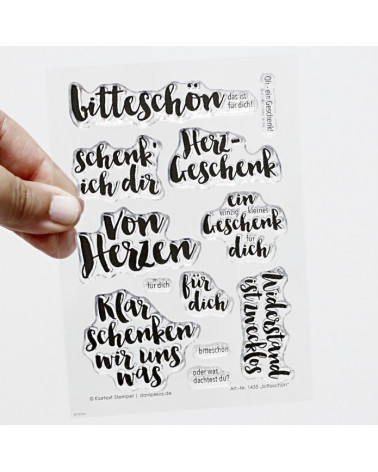 bitteschön
das ist
für dich!
Oh - ein Geschenk!
schenk'
ich dir
Herz-
Geschenk
ein
winzig kleines
Geschenk
für
dich
von
Herzen
für dich
für
dich
Widerstand
ist zwecklos
Klar
schenken
wir uns
was
bitteschön
oder was
dachtest du?
© Klartext Stempel | danipeuss.de
Art.-Nr. 1435 „bitteschön“